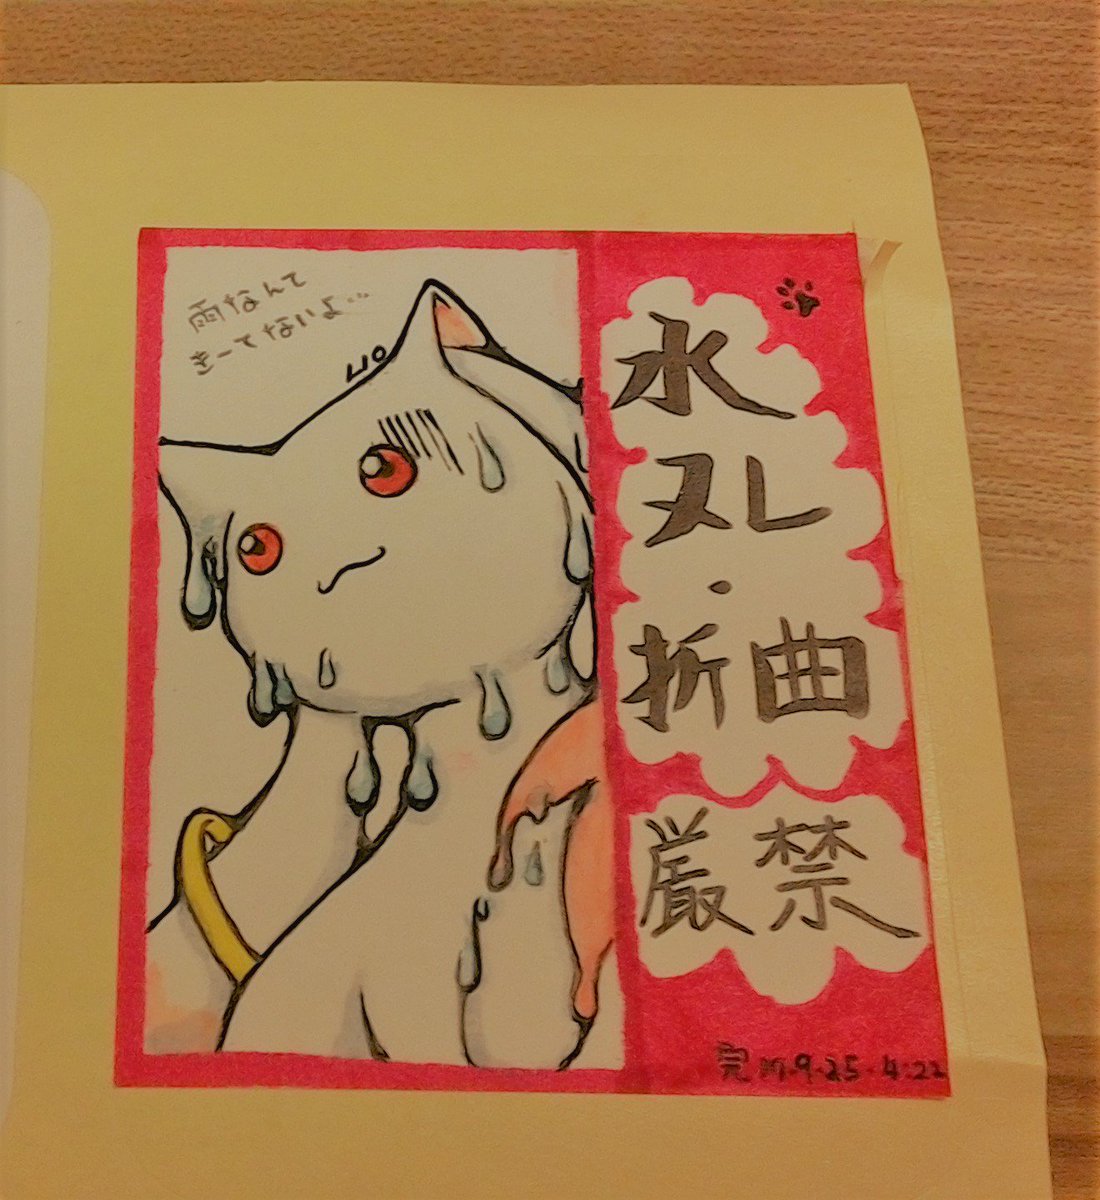 雨なんて
きーてないよ…
水
ヌレ
・
折曲
厳禁
完 17.9.25.4:22